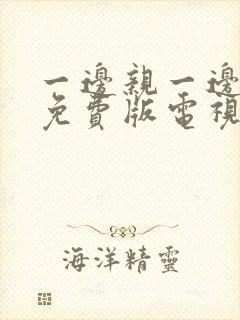 一邊親一邊
免費版電視
海洋精靈